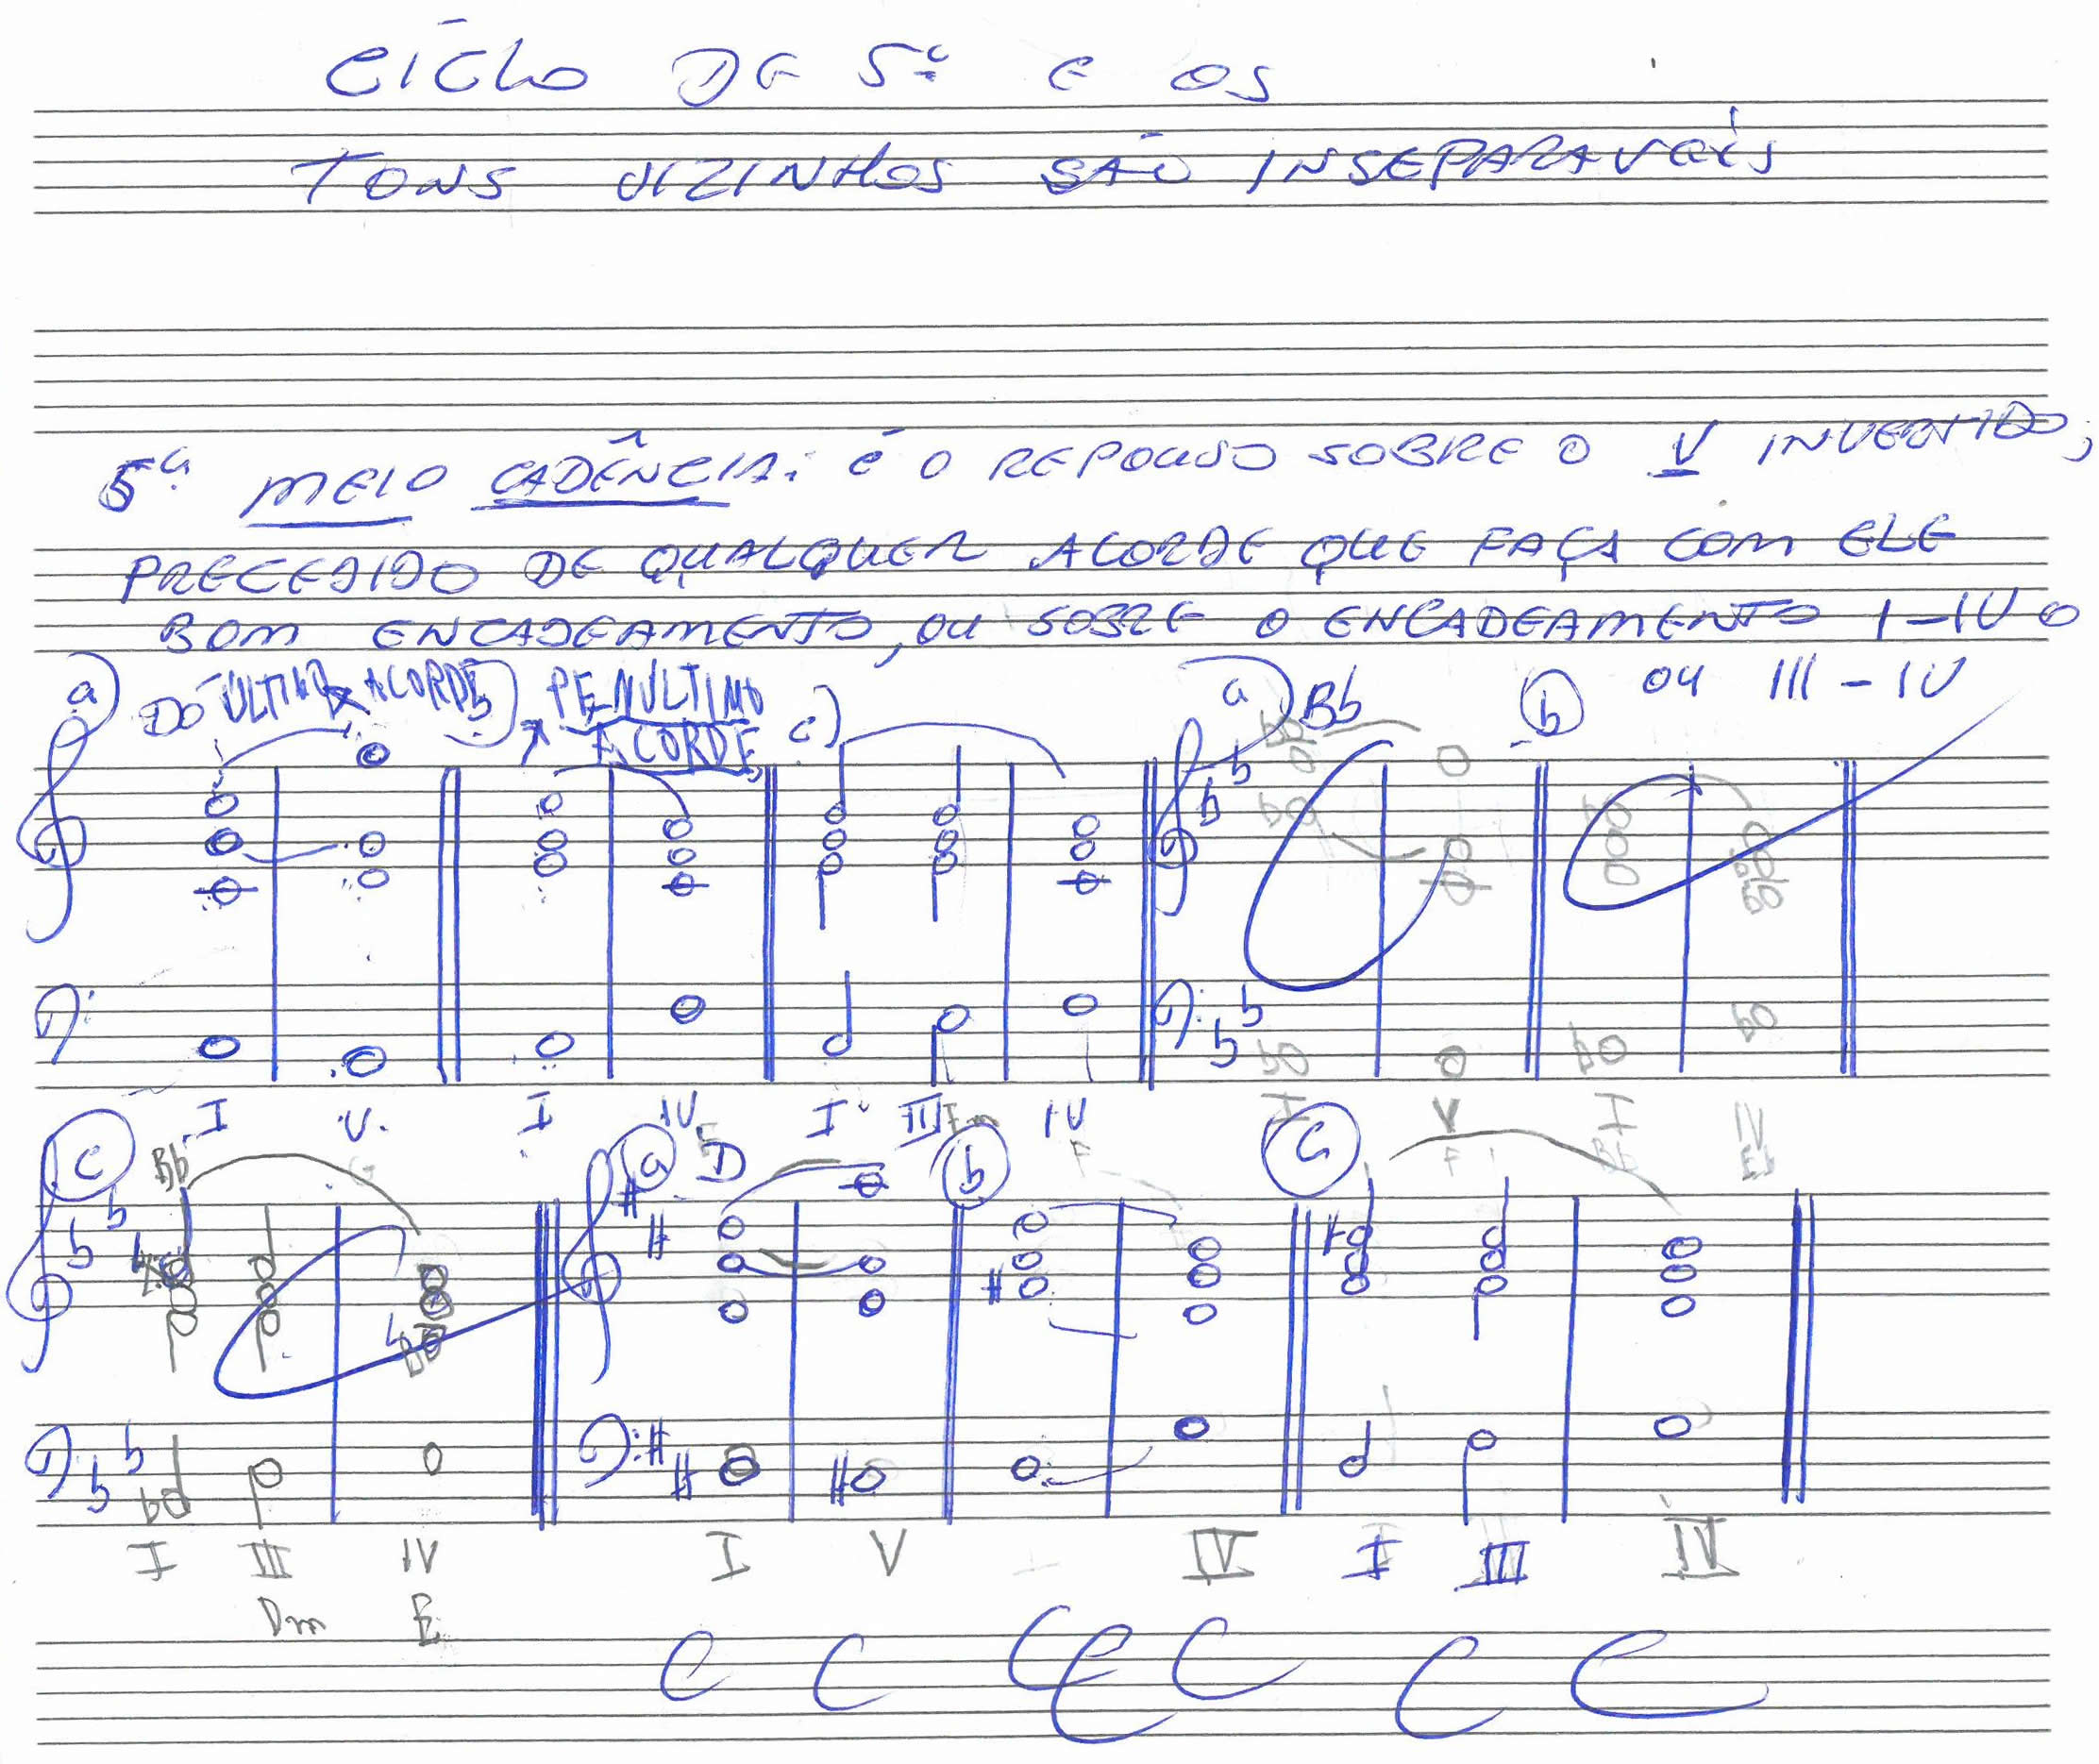 CICLO DE 5ª E OS
TONS VIZINHOS SÃO INSEPARAVÉIS
5ª MEIO CADÊNCIA: É O REPOUSO SOBRE O V INVERTIDO,
PRECEDIDO DE QUALQUER ACORDE QUE FAÇA COM ELE
BOM ENCADEAMENTO, OU SOBRE O ENCADEAMENTO I-IV O
a) DÓ ÚLTIMO ACORDE b) PENÚLTIMO c) a) Bb b OU III-IV
ACORDE
I V I IV I III IV I V I IV
F F Bb Eb
c Bb G a D b C
I III IV I V IV I III IV
Dm E
C C C C C C C